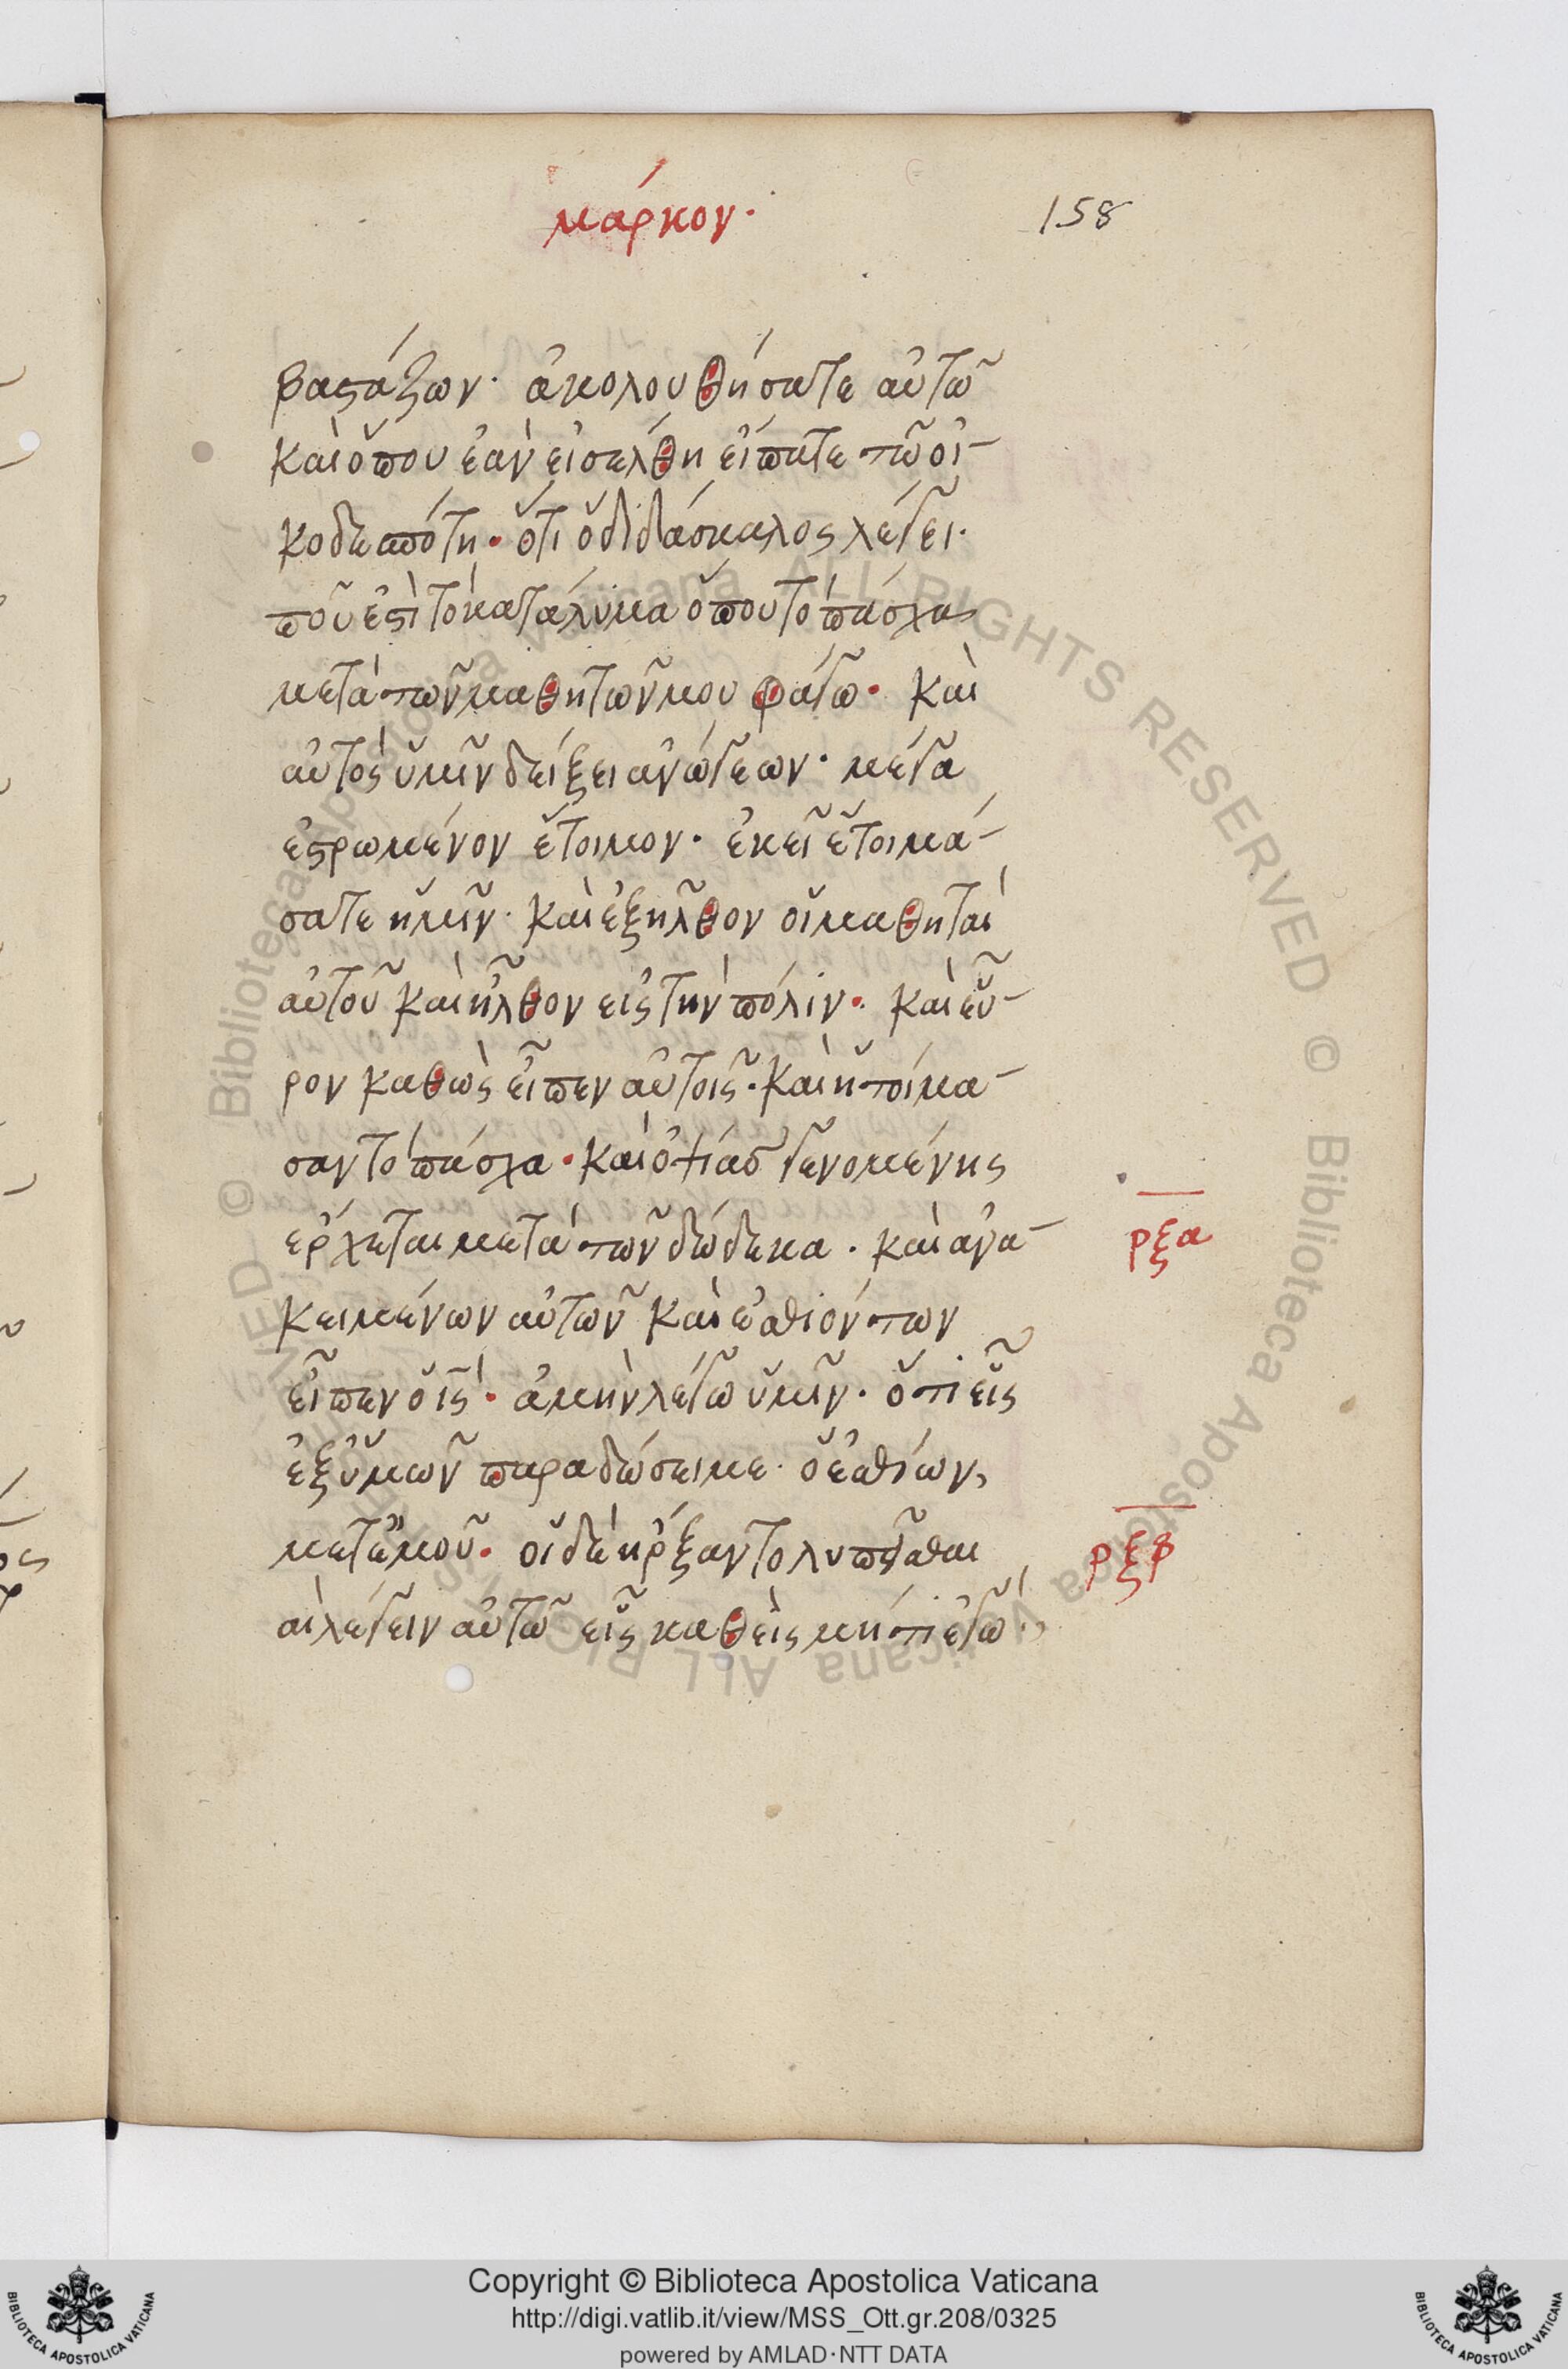 μάρκον·
158
βαστάζων· ἀκολουθήσατε αὐτῶ
καὶ ὅπου ἐὰν εἰσέλθη εἴπατε τῶ οἰ-
κοδεσπότη· ὅτι ὁ διδάσκαλος λέγει·
ποῦ ἐστὶ τὸ κατάλυμα ὅπου τὸ πάσχα
μετὰ τῶν μαθητῶν μου φάγω· καὶ
αὐτὸς ὑμῖν δείξει ἀνώγεων· μέγα
ἐστρωμένον ἕτοιμον· ἐκεῖ ἑτοιμά-
σατε ἡμῖν· καὶ ἐξῆλθον οἱ μαθηταὶ
αὐτοῦ καὶ ἦλθον εἰς τὴν πόλιν· καὶ εὗ-
ρον καθὼς εἶπεν αὐτοῖς· καὶ ἡτοίμα-
σαν τὸ πάσχα· καὶ ὀψίας γενομένης
ἔρχεται μετὰ τῶν δώδεκα· καὶ ἀνα-
ρξα
κειμένων αὐτῶν καὶ ἐσθιόντων
εἶπεν ὁ ις· ἀμὴν λέγω ὑμῖν· ὅτι εἷς
ἐξ ὑμῶν παραδώσει με· ὁ ἐσθίων,
μετ' ἐμοῦ· οἱ δὲ ἤρξαντο λυπεῖσθαι
ρξβ
αὶ λέγειν αὐτῶ εἷς καθεὶς μήτι ἐγώ·,
Copyright © Biblioteca Apostolica Vaticana
http://digi.vatlib.it/view/MSS_Ott.gr.208/0325
powered by AMLAD·NTT DATA
BIBLIOTECA APOSTOLICA VATICANA
BIBLIOTECA APOSTOLICA VATICANA
© Biblioteca Apostolica Vaticana ALL RIGHTS RESERVED © Biblioteca Apostolica Vaticana ALL RIGHTS RESERVED